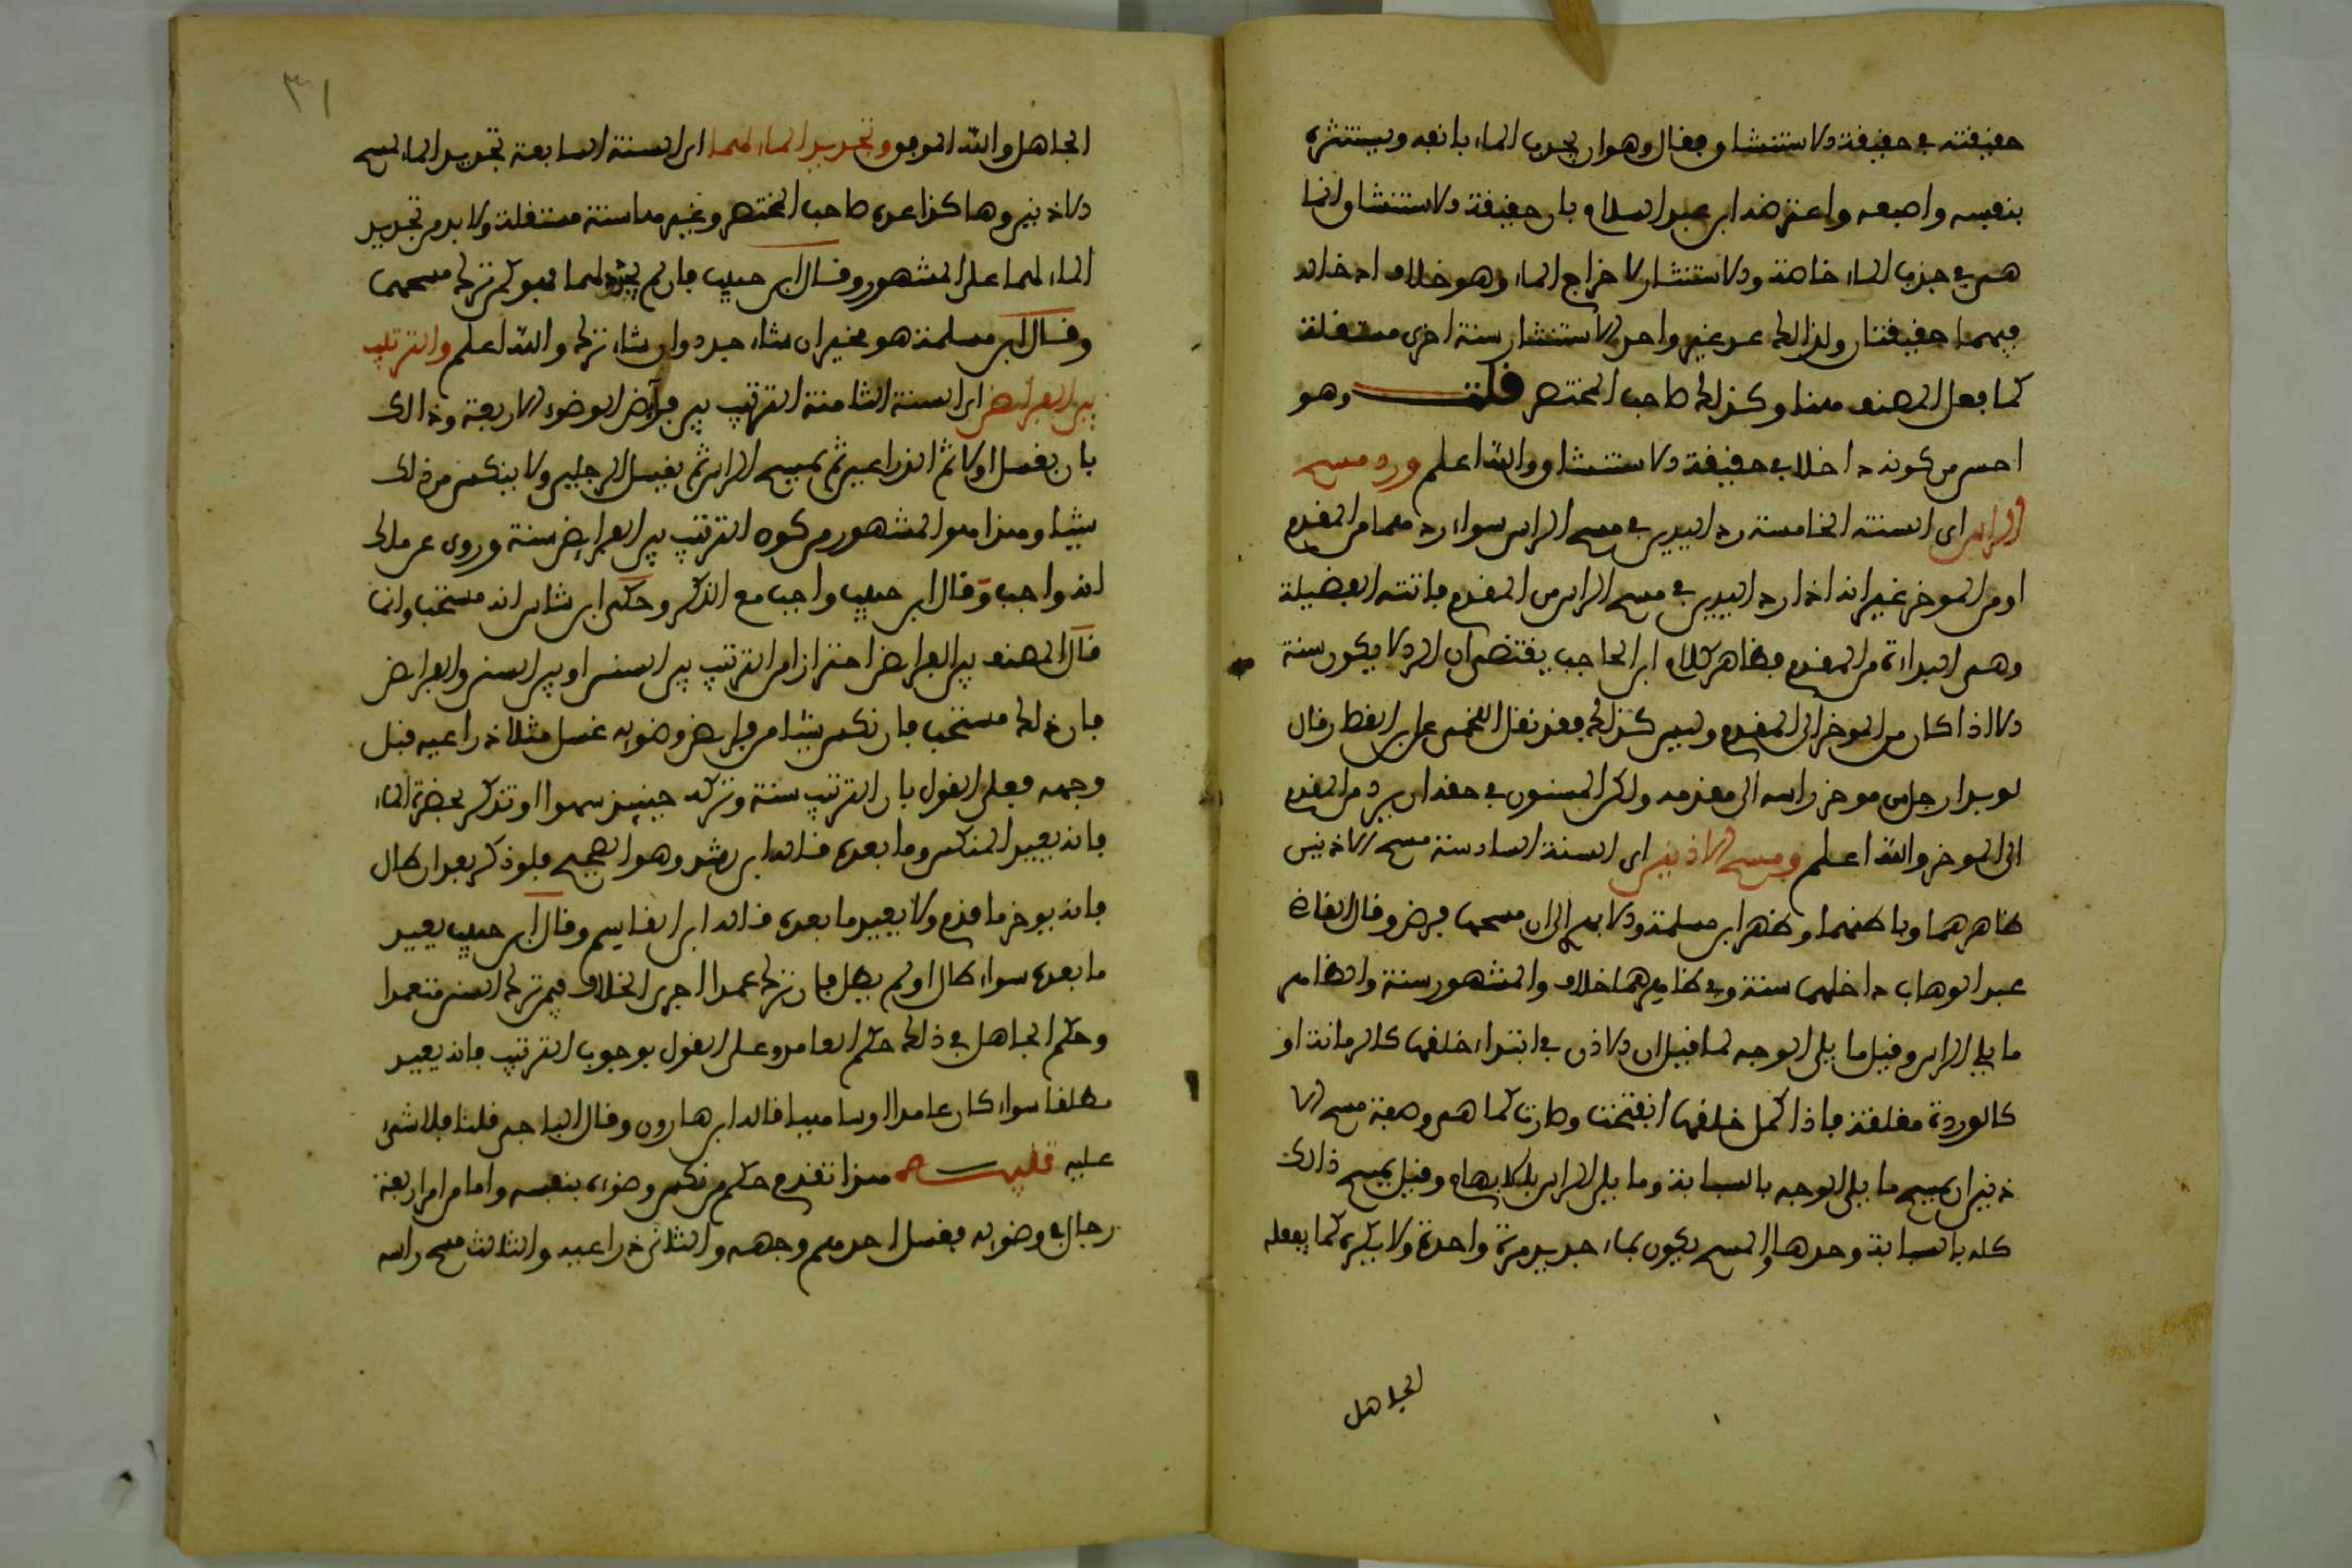 حقيقته في حقيقة الاستنشاق فقال وهو ان يجذب الماء بانفه ويستنثره
بنفسه واصبعه واعترضه ابن عبد السلام بان حقيقة الاستنشاق انما
هي في جذب الماء خاصة والاستنثار لاخراج الماء وهو خلاف ادخاله
فهما حقيقتان ولذالك عد غير واحد الاستنثار سنة اخرى مستقلة
كما فعل المصنف هنا وكذلك صاحب المختصر قلت وهو
احسن من كونه داخلا في حقيقة الاستنشاق والله اعلم ورد مسح
الراس اى السنة الخامسة رد اليدين في مسح الراس سواء ردهما من المقدم
او من الموخر غير انه اذا رد اليدين في مسح الراس من المقدم فاتته الفضيلة
وهي البداءة من المقدم فظاهر كلام ابن الحاجب يقتضي ان الرد لا يكون سنة
الا اذا كان من الموخر الى المقدم وليس كذلك فقد نقل اللخمي عن ابن القصار قال
لو بدا رجل من موخر راسه الى مقدمه ولكن المسنون في حقه ان يرد من المقدم
الى الموخر والله اعلم ومسح الاذنين اى السنة السادسة مسح الاذنين
ظاهرهما وباطنهما وظهر ابن مسلمة والابهري الى ان مسحهما فرض وقال القاضي
عبد الوهاب داخلهما سنة وفي ظاهرهما خلاف والمشهور سنة والظاهر
ما يلي الراس وقيل ما يلي الوجه لما قيل ان الاذن في ابتداء خلقها كالرمانة او
كالوردة مغلقة فاذا كمل خلقها انفتحت وصارت كما هي وصفة مسح الا
ذنين ان يمسح ما يلي الوجه بالسبابة وما يلي الراس بالابهام وقيل يمسح ذالك
كله بالسبابة وحدها والمسح يكون بماء جديد مرة واحدة ولا يكره كما يفعله
الجاهل
٣١
الجاهل والله الموفق وتجديد الماء لهما اى السنة السابعة تجديد الماء لمسح
الاذنين وهاكذا عده صاحب المختصر وغيره هنا سنة مستقلة ولا بد من تجديد
الماء لهما على المشهور وقال ابن حبيب فان لم يجدد لهما فهو كمن ترك مسحهما
وقال ابن مسلمة هو مخير ان شاء جدد وان شاء ترك والله اعلم والترتيب
بين الفرائض اى السنة الثامنة الترتيب بين فرآئض الوضوء الاربعة وذالك
بان يغسل اولا ثم الذراعين ثم يمسح الراس ثم يغسل الرجلين ولا ينكس من ذلك
شيئا وهذا هو المشهور من كون الترتيب بين الفرائض سنة وروى عن مالك
انه واجب وقال ابن حبيب واجب مع الذكر وحكى ابن شاس انه مستحب وانما
قال المصنف بين الفرائض احترازا من الترتيب بين السنن او بين السنن والفرائض
فان ذلك مستحب فان نكس شيئا من فرائض وضوئه غسل مثلا ذراعيه قبل
وجهه فعلى القول بان الترتيب سنة وتركه حينئذ سهوا او تذكر بحضرة الماء
فانه يعيد المنكس وما بعده قاله ابن رشد وهو الصحيح فلو ذكر بعد ان طال
فانه يوخر ما قدم ولا يعيد ما بعده قاله ابن القاسم وقال ابن حبيب يعيد
ما بعده سواء طال او لم يطل فان ترك عمدا اجرى الخلاف فيمن ترك السنن متعمدا
وحكم الجاهل في ذلك حكم العامد وعلى القول بوجوب الترتيب فانه يعيد
مطلقا سواء كان عامدا او ساهيا قاله ابن هارون وقال الباجي قلنا فلا شيء
عليه تنبيه هذا تقدم حكم من نكس وضوءه بنفسه واما من امر اربعة
رجال في وضوئه فغسل احدهم وجهه والثاني ذراعيه والثالث مسح راسه